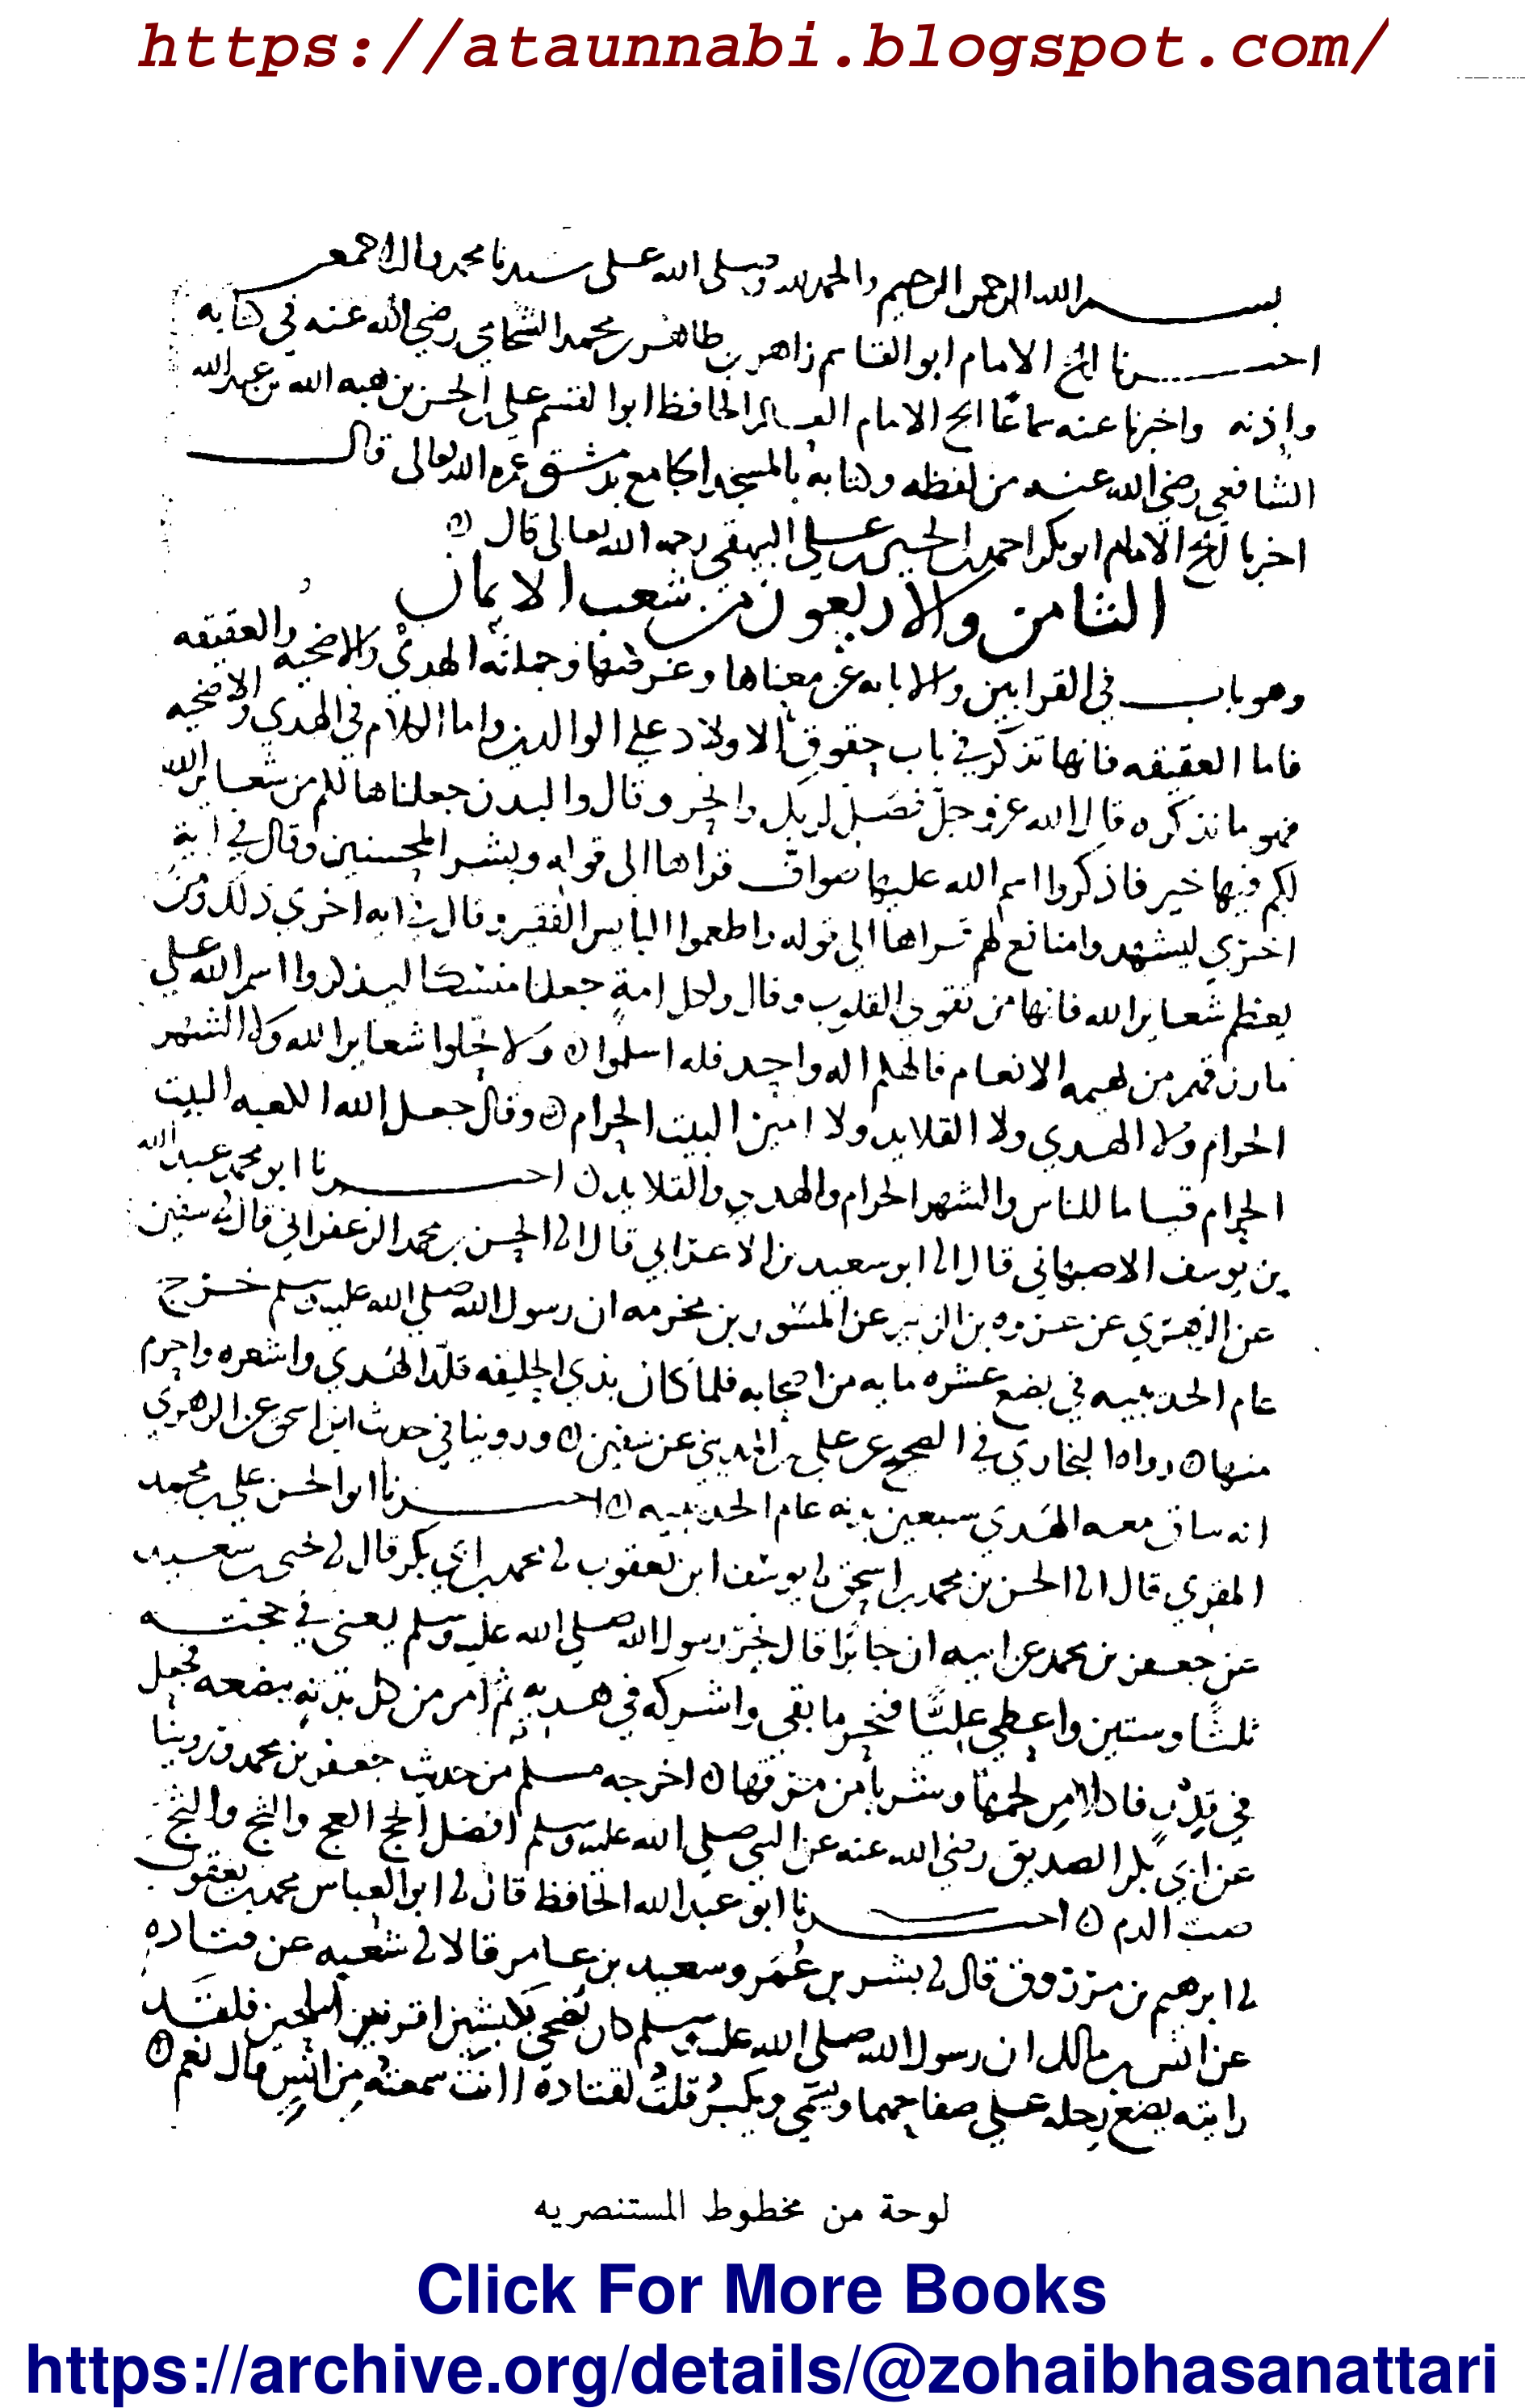 https://ataunnabi.blogspot.com/
بسم الله الرحمن الرحيم والحمد لله وصلى الله على سيدنا محمد واله اجمعين
اخبرنا الشيخ الامام ابو القاسم زاهر بن طاهر بن محمد الشحامي رضي الله عنه في كتابه
واذنه واخبرنا عنه سماعا الشيخ الامام العالم الحافظ ابو القسم علي بن الحسن بن هبه الله بن عبد الله
الشافعي رضي الله عنه من لفظه وكتابه بالمسجد الجامع بدمشق عمره الله تعالى قال
اخبرنا الشيخ الامام ابو بكر احمد بن الحسين بن علي البيهقي رحمه الله تعالى قال
الثامن والاربعون من شعب الايمان
وهو باب في القرابين والابانه عن معناها وغرضها وجملته الهدي والاضحيه والعقيقه
فاما العقيقه فانها تذكر في باب حقوق الاولاد علي الوالدين واما الكلام في الهدي والاضحيه
فهو ما نذكره قال الله عز وجل فصل لربك وانحر وقال والبدن جعلناها لكم من شعاير الله
لكم فيها خير فاذكروا اسم الله عليها صواف قراها الى قوله وبشر المحسنين وقال في اية
اخري ليشهدوا منافع لهم قراها الي قوله واطعموا البايس الفقير وقال في ايه اخري ذلك ومن
يعظم شعاير الله فانها من تقوي القلوب وقال ولكل امة جعلنا منسكا ليذكروا اسم الله علي
ما رزقهم من بهيمه الانعام فالهكم اله واحد فله اسلموا ٥ ولا تحلوا شعاير الله ولا الشهر
الحرام ولا الهدي ولا القلايد ولا امين البيت الحرام ٥ وقال جعل الله الكعبه البيت
الحرام قياما للناس والشهر الحرام والهدي والقلايد ٥ اخبرنا ابو محمد عبد الله
بن يوسف الاصبهاني قال انا ابو سعيد بن الاعرابي قال انا الحسن بن محمد الزعفراني قال نا سفين
عن الزهري عن عروه بن الزبير عن المسور بن مخرمه ان رسول الله صلي الله عليه وسلم خرج
عام الحديبيه في بضع عشره مايه من اصحابه فلما كان بذي الحليفه قلد الهدي واشعره واحرم
منها ٥ رواه البخاري في الصحيح عن علي بن المديني عن سفين ٥ وروينا في حديث ابن اسحق عن الزهري
انه ساق معه الهدي سبعين بدنه عام الحديبيه ٥ اخبرنا ابو الحسن علي بن محمد
المقري قال انا الحسن بن محمد بن اسحق نا يوسف ابن يعقوب نا محمد بن ابي بكر قال نا يحيى بن سعيد
عن جعفر بن محمد عن ابيه ان جابرا قال نحر رسول الله صلي الله عليه وسلم يعني في حجته
ثلثا وستين واعطي عليا فنحر ما بقي واشركه في هديه ثم امر من كل بدنه ببضعه فجعل
في قدر فاكلا من لحمها وشربا من مرقها ٥ اخرجه مسلم من حديث جعفر بن محمد وروينا
عن ابي بكر الصديق رضي الله عنه عن النبي صلي الله عليه وسلم افضل الحج العج والثج والثج
صب الدم ٥ اخبرنا ابو عبد الله الحافظ قال نا ابو العباس محمد بن يعقوب
نا ابرهيم بن مرزوق قال نا بشر بن عمر وسعيد بن عامر قالا نا شعبه عن قتاده
عن انس بن مالك ان رسول الله صلي الله عليه وسلم كان يضحي بكبشين اقرنين املحين فلقد
رايته يضع رجله علي صفاحهما ويسمي ويكبر قلت لقتادة اانت سمعته من انس قال نعم ٥
لوحة من مخطوط المستنصريه
Click For More Books
https://archive.org/details/@zohaibhasanattari